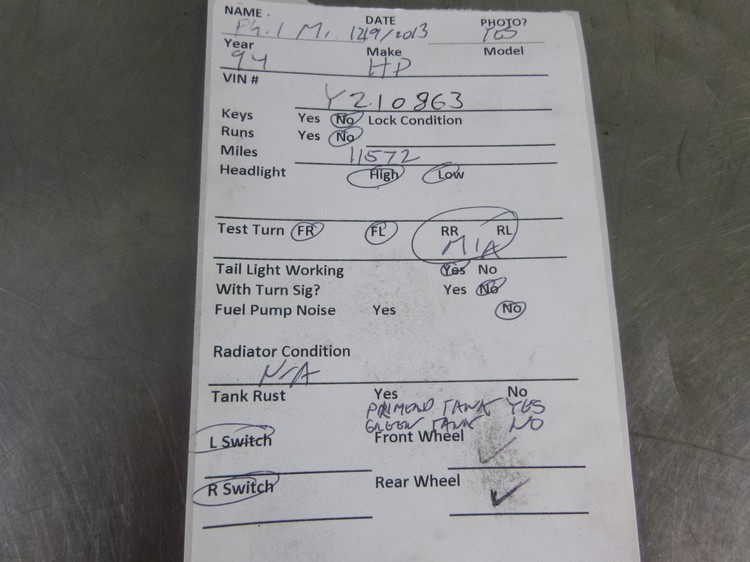 NAME DATE PHOTO?
Phil M. 12/9/2013 YES
Year Make Model
94 HD
VIN #
Y210863
Keys Yes No Lock Condition
Runs Yes No
Miles 11572
Headlight High Low
Test Turn FR FL RR RL
MIA
Tail Light Working Yes No
With Turn Sig? Yes No
Fuel Pump Noise Yes No
Radiator Condition
N/A
Tank Rust Yes No
TANK YES
GREEN TANK NO
L Switch Front Wheel ✓
R Switch Rear Wheel ✓